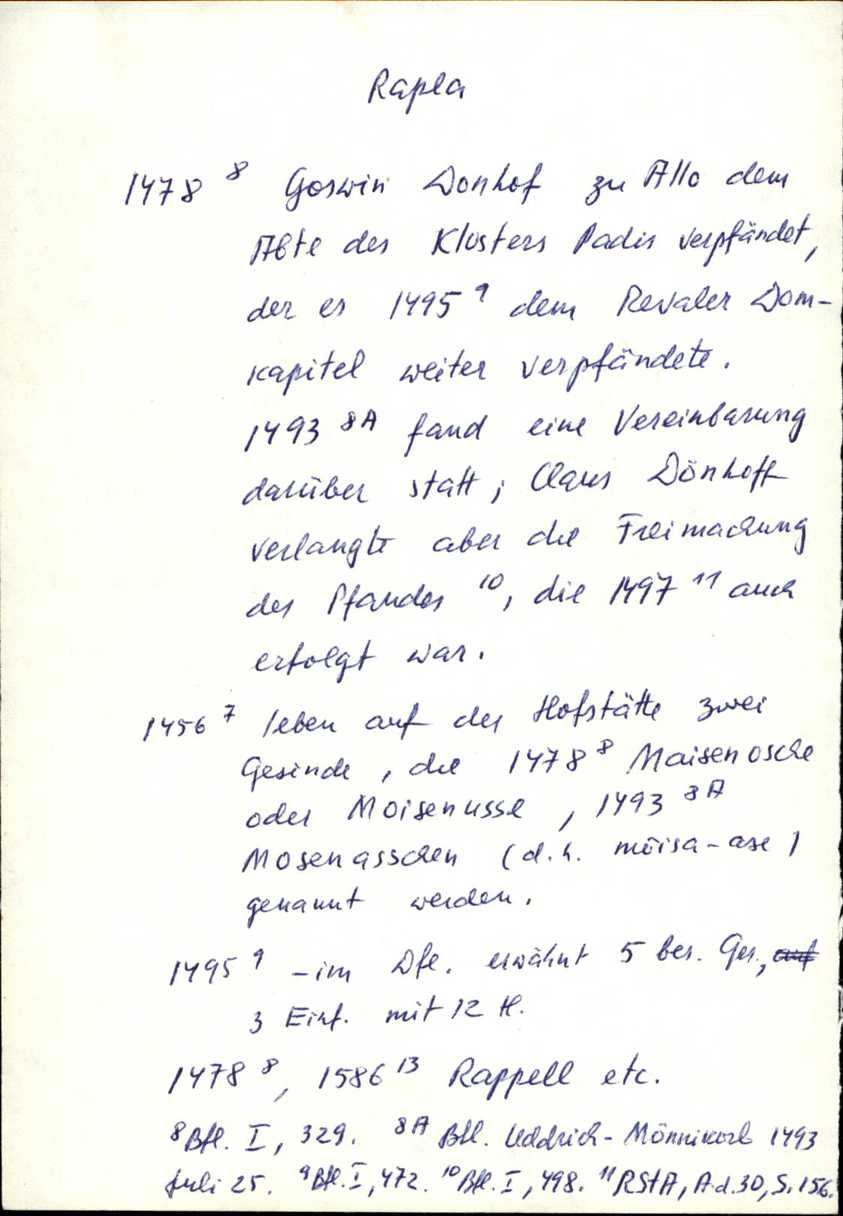 Rapla
1478 ⁸ Goswin Dönhof zu Allo dem
Abte des Klosters Padis verpfändet,
der es 1495 ⁹ dem Revaler Dom-
kapitel weiter verpfändete.
1493 ⁸ᴬ fand eine Vereinbarung
darüber statt; Claus Dönhoff
verlangte aber die Freimachung
des Pfandes ¹⁰, die 1497 ¹¹ auch
erfolgt war.
1456 ⁷ leben auf der Hofstätte zwei
Gesinde, die 1478 ⁸ Maisenosche
oder Moisenusse, 1493 ⁸ᴬ
Mosenasschen (d.h. mõisa-ase)
genannt werden.
1495 ⁹ – im Dfe. erwähnt 5 bes. Ges.,
3 Einf. mit 12 H.
1478 ⁸, 1586 ¹³ Rappell etc.
⁸ Bfl. I, 329. ⁸ᴬ Bfl. Uddrich-Mönnikorb 1493
Juli 25. ⁹ Bfl. I, 472. ¹⁰ Bfl. I, 498. ¹¹ RStA, A.d.30, S. 156.